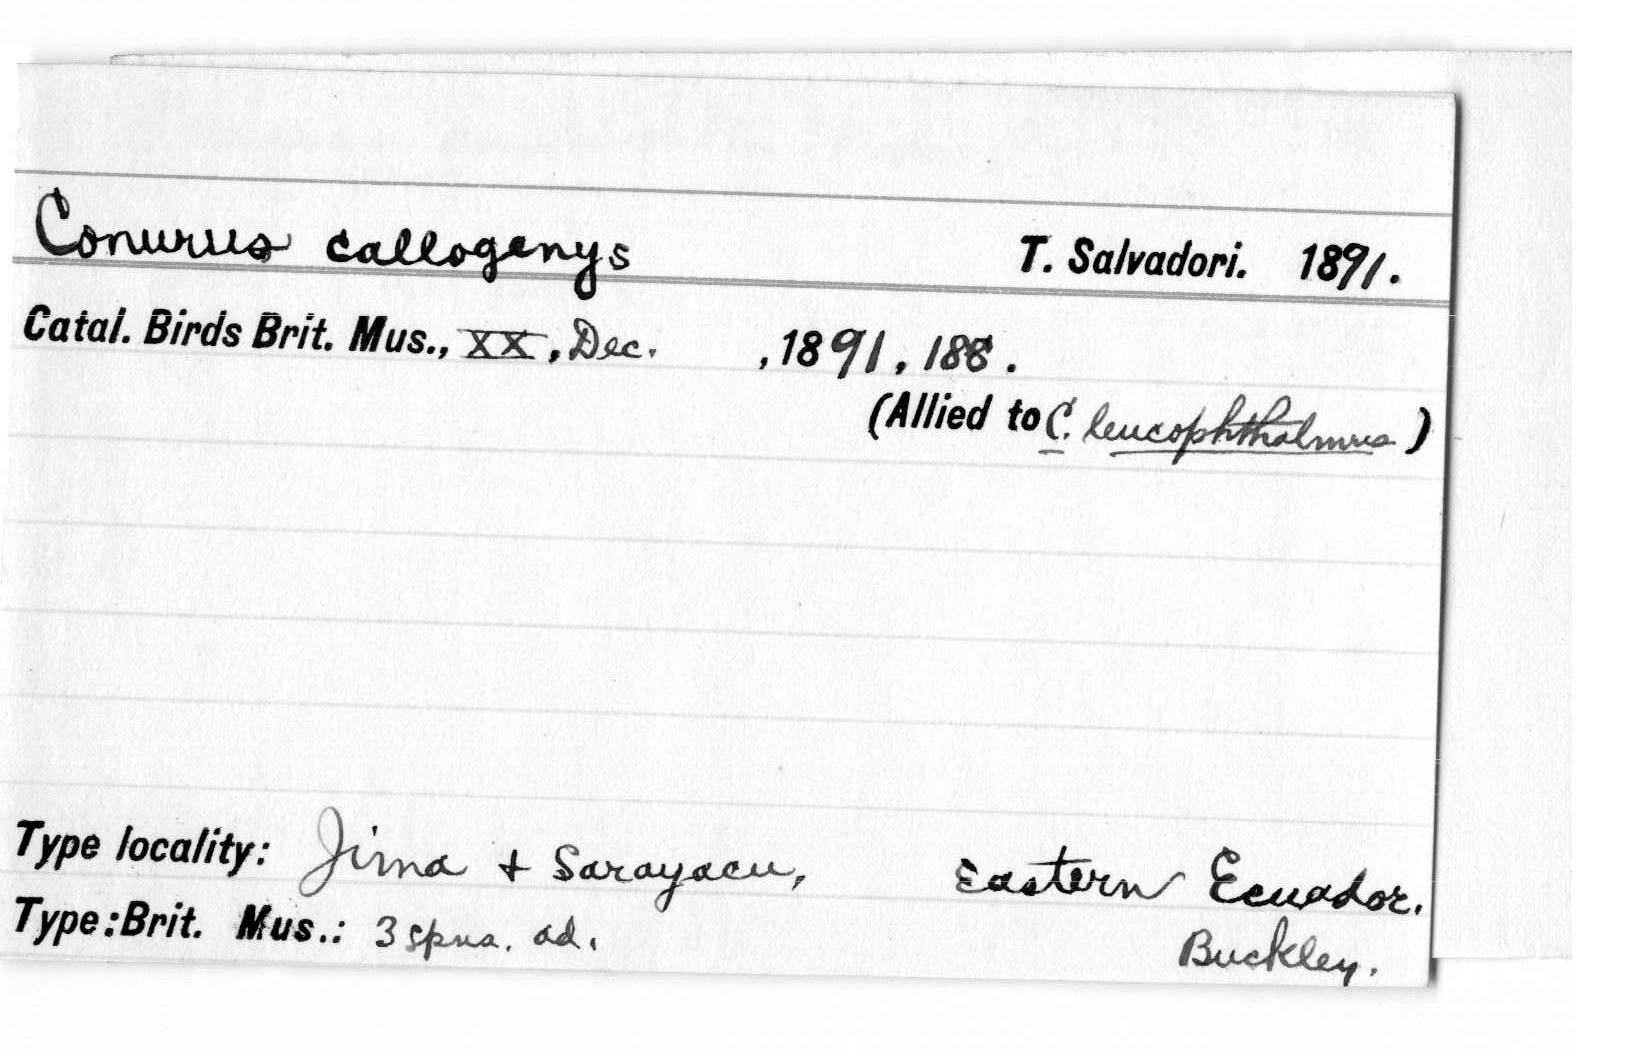 Conurus callogenys T. Salvadori. 1891.
Catal. Birds Brit. Mus., XX, Dec. , 1891, 188.
(Allied to C. leucophthalmus)
Type locality: Jima + Sarayacu, Eastern Ecuador.
Type: Brit. Mus.: 3 spns. ad. Buckley.